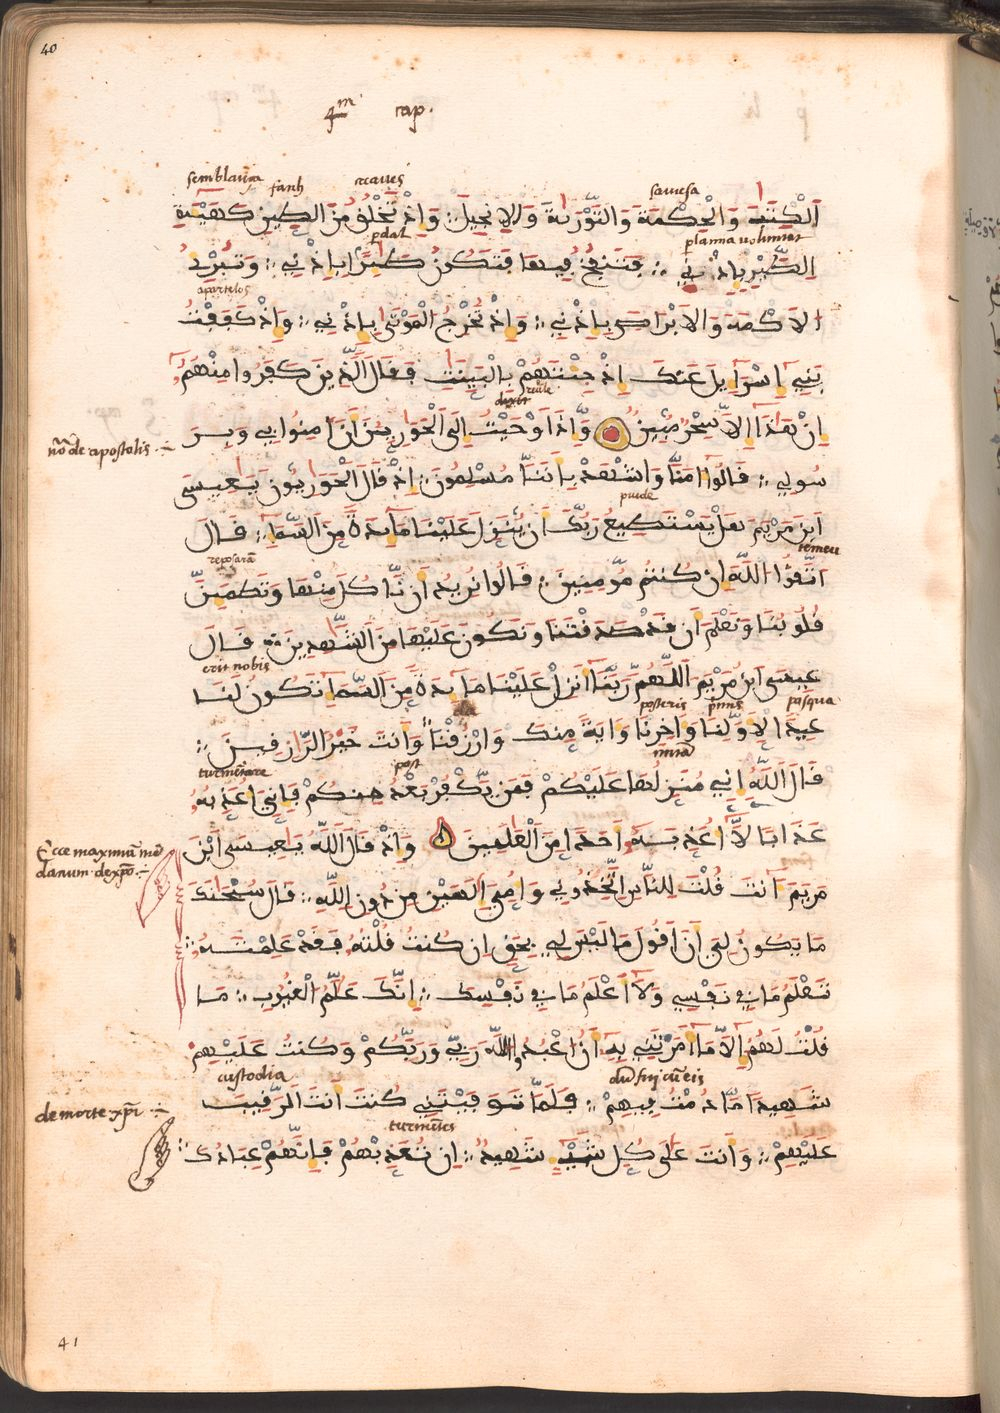 40
4.m cap.
semblança fanh creaves saviesa
الكتب والحكمة والتورية والانجيل وإذ تخلق من الطين كهيئة
perdal per la mia voluntat
الطير بإذني فتنفخ فيها فتكون طيرا بإذني وتبرئ
apartelos
الاكمه والابرص بإذني وإذ تخرج الموتى بإذني وإذ كففت
بني اسرآيل عنك إذ جئتهم بالبينت فقال الذين كفروا منهم
revele
dixit
إن هذا إلا سحر مبين وإذ أوحيت إلى الحوارين أن امنوا بي وبر
no de apostolis
سولي قالوا امنا واشهد بأننا مسلمون إذ قال الحواريون يعيسى
puide
ابن مريم هل يستطيع ربك ان ينزل علينا مآيدة من السمآ قال
temeu
reposarà
اتقوا الله ان كنتم مومنين قالوا نريد أن ناكل منها وتطمين
قلوبنا ونعلم أن قد صدقتنا ونكون عليها من الشهدين قال
erit nobis
عيسى ابن مريم اللهم ربنا أنزل علينا مآيدة من السمآ تكون لنا
posteris primis pasqua
عيدا لاولنا واخرنا واية منك وارزقنا وانت خير الرازقين
turmentare post
قال الله اني منزلها عليكم فمن يكفر بعد منكم فإني أعذبه
عذابا لا أعذبه أحدا من العلمين وإذ قال الله يعيسى ابن
Ecce maximum men
danum de xpo
مريم آنت قلت للناس اتخذوني وأمي إلهين من دون الله قال سبحنك
ما يكون لي أن أقول ما ليس لي بحق ان كنت قلته فقد علمته
تعلم ما في نفسي ولا أعلم ما في نفسك إنك علم الغيوب ما
قلت لهم إلا ما أمرتني به أن اعبدوا الله ربي وربكم وكنت عليهم
custodia dum fui cum eis
شهيدا ما دمت فيهم فلما توفيتني كنت أنت الرقيب
de morte xpi
turmentes
عليهم وأنت على كل شيء شهيد إن تعذبهم فإنهم عبادك
41